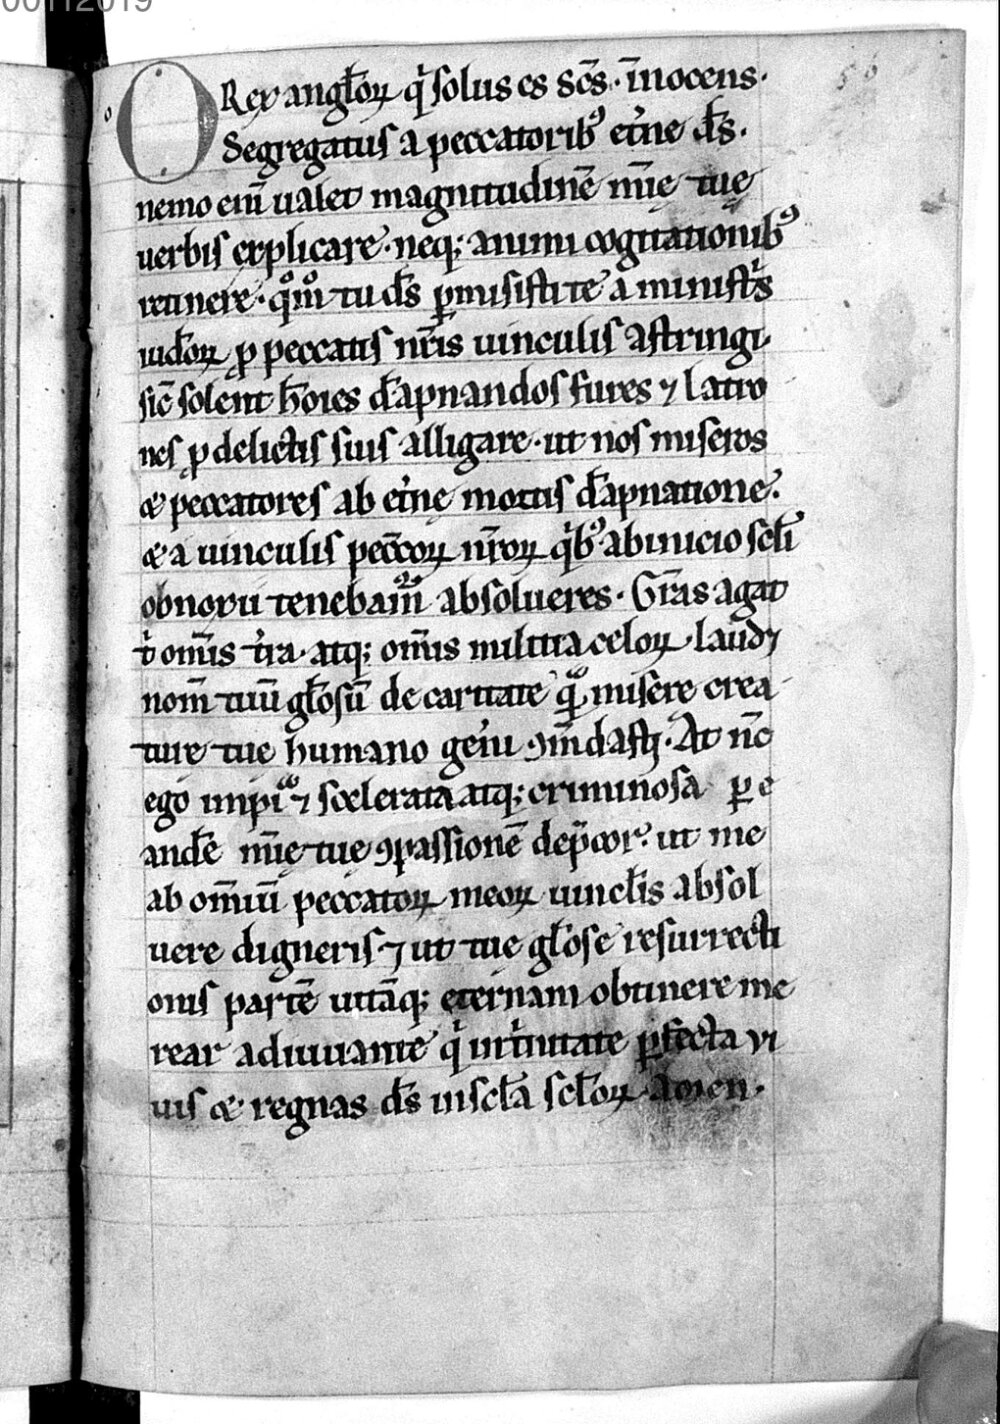 00112019
56
O Rex angl̄oꝝ q̇ solus es sc̄s · īnocens ·
Segregatus a peccatorib᷒ et̓ne ds̄ ·
nemo eni̅ ualet magnitudinē mīe tuę
uerbis explicare · neq; animi cogitationib᷒
retinere · qm̊ tu ds̄ ꝑmisisti te a ministris
iudeoꝝ ꝓ peccatis nr̄is uinculis astringi ·
sic̄ solent ho̅ies da̅pnandos fures ⁊ latro
nes ꝓ delictis suis alligare · ut nos miseros
& peccatores ab et̓nę mortis da̅pnatione ·
& a uinculis pecc̄oꝝ nr̄oꝝ q̇b᷒ ab inicio scl̄i
obnoxii tenebam̄ absolueres · Gr̄as agat
ṫ om̄is t̓ra · atq; om̄is militia celoꝝ · laud⁊
nom̄ tuū gl̄osū de caritate qͣ misere crea
ture tue humano gen̓i ꝯm̄dasti · At nc̄
ego impia ⁊ scelerata atq; criminosa ꝑ e
andē mīę tuę ꝯpassionē dep̄cor · ut me
ab om̄iū peccatoꝝ meoꝝ uincl̄is absol
uere digneris ⁊ ut tuę gl̄ose resurrecti
onis partē uitāq; eternam obtinere me
rear adiuuante q̇ in trinitate ꝑfecta vi
uis & regnas ds̄ in scl̄a scl̄oꝝ · amen ·